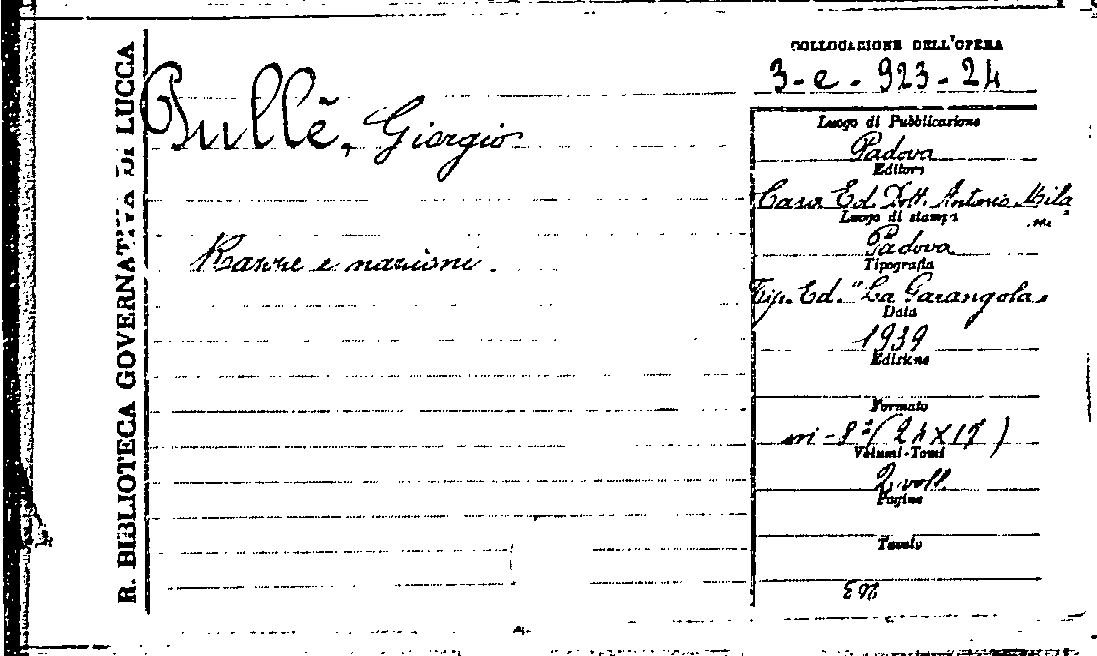 R. BIBLIOTECA GOVERNATIVA DI LUCCA
Pullè, Giorgio
Razze e nazioni.
COLLOCAZIONE DELL'OPERA
3-e-923-24
Luogo di Pubblicazione
Padova
Editore
Casa Ed. Dott. Antonio Mila
ni
Luogo di stampa
Padova
Tipografia
Tip. Ed. "La Garangola"
Data
1939
Edizione
Formato
in-8º (24x17)
Volumi-Tomi
2 voll.
Pagine
Tavole